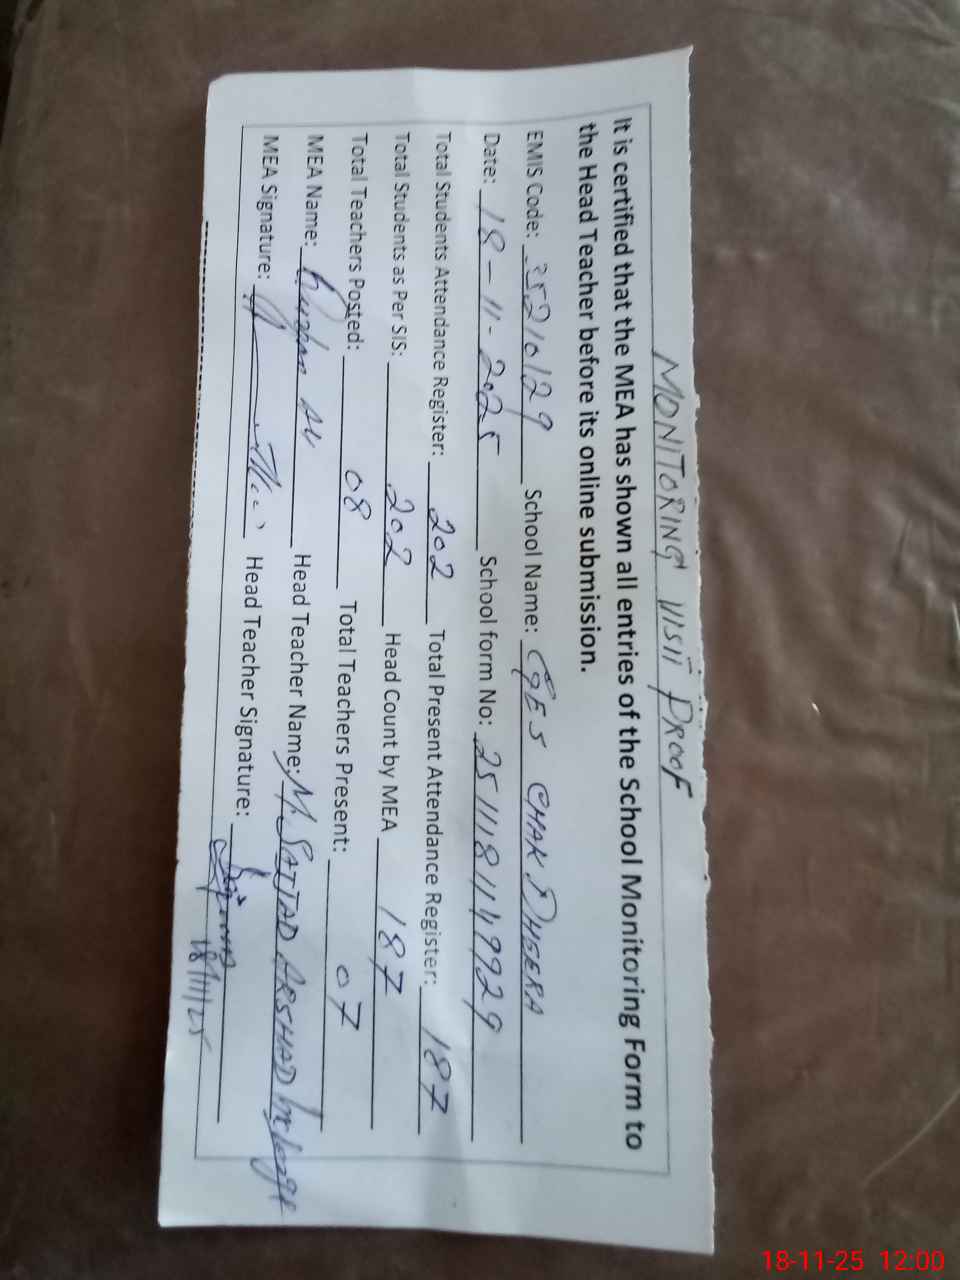 MONITORING VISIT PROOF
It is certified that the MEA has shown all entries of the School Monitoring Form to
the Head Teacher before its online submission.
EMIS Code: 35210129 School Name: GES CHAK DHEERA
Date: 18-11-2025 School form No: 2511181149929
Total Students Attendance Register: 202 Total Present Attendance Register: 187
Total Students as Per SIS: 202 Head Count by MEA 187
Total Teachers Posted: 08 Total Teachers Present: 07
MEA Name: Head Teacher Name: M. SAJJAD ARSHAD
MEA Signature: Head Teacher Signature:
18/11/25
18-11-25 12:00